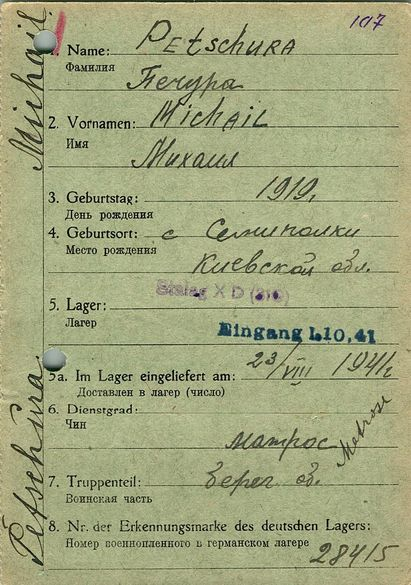 107
1. Name: PETSCHURA
Фамилия
Печура
2. Vornamen: MICHAIL
Имя
Михаил
3. Geburtstag: 1919г
День рождения
4. Geburtsort: с Семиполки
Место рождения
Киевской обл.
Stalag X D (310)
5. Lager:
Лагер
Eingang 1.10.41
5a. Im Lager eingeliefert am: 23/VIII 1941г
Доставлен в лагер (число)
6. Dienstgrad:
Чин
матрос
Matrose
7. Truppenteil: берег об.
Воинская часть
8. Nr. der Erkennungsmarke des deutschen Lagers:
Номер военнопленного в германском лагере
28415
Petschura Michail